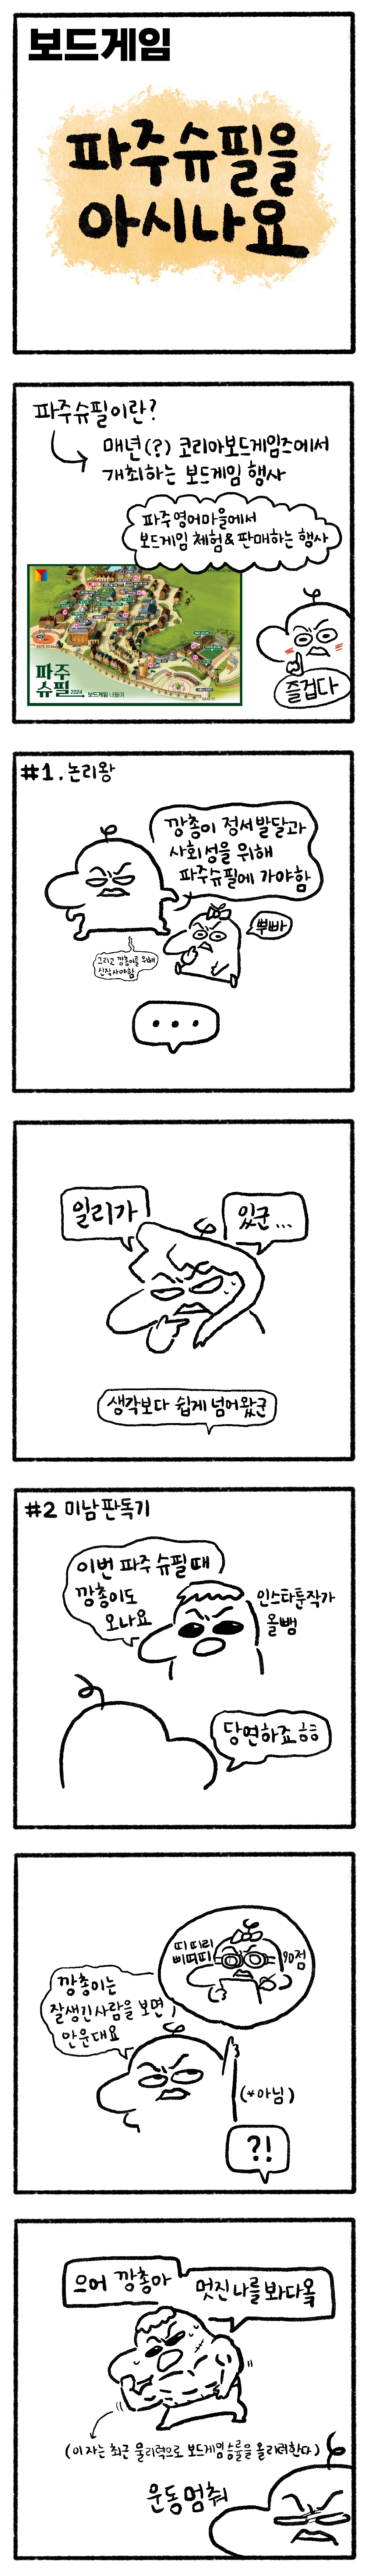 보드게임
파주슈필을
아시나요
파주슈필이란?
매년(?) 코리아보드게임즈에서
개최하는 보드게임 행사
파주영어마을에서
보드게임 체험&판매하는 행사
파주
슈필 2024
보드게임 나들이
즐겁다
#1. 논리왕
깡총이 정서발달과
사회성을 위해
파주슈필에 가야함
뿌빠
그리고 깡총이를 위해
신작사야함
...
일리가
있군...
생각보다 쉽게 넘어왔군
#2 미남판독기
이번 파주 슈필때
깡총이도
오나요
인스타툰작가
올뺌
당연하죠 ㅎㅎ
띠띠리
삐띠띠
90점
깡총이는
잘생긴사람을 보면
안운대요
(*아님)
?!
으어 깡총아
멋진나를봐다옥
(이자는 최근 물리력으로 보드게임승률을 올리려한다)
운동멈춰